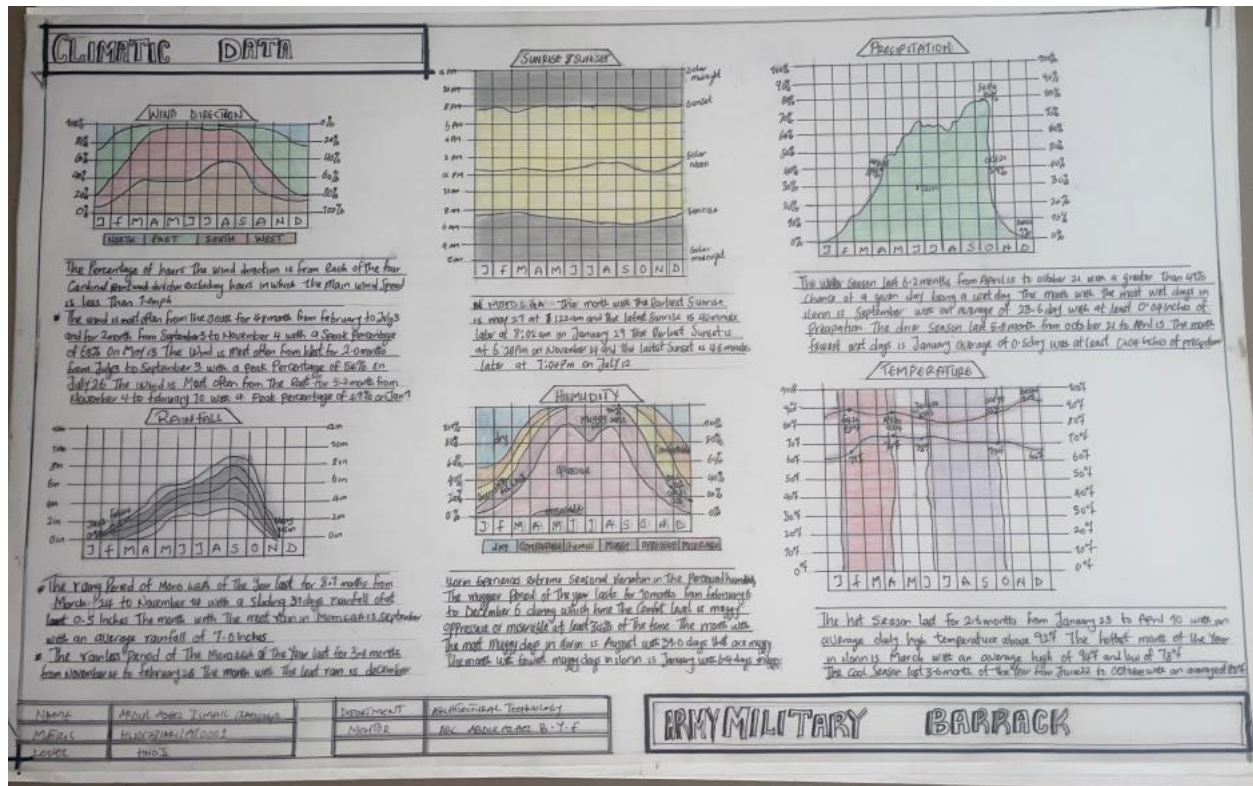 CLIMATIC DATA
WIND DIRECTION
100% 0%
80% 20%
60% 40%
40% 60%
20% 80%
0% 100%
J F M A M J J A S A N D
NORTH EAST SOUTH WEST
The Percentage of hours The wind direction is from Each of the four
Cardinal wind direction excluding hours in which The Main wind Speed
is less Than 1.0mph
The wind is most often from the South for 4.8 month from february to July 3
and for 2 month from September 3 to November 4 with a Speak Percentage
of 68% On May 13 The wind is Most often from West for 2.0 months
from July 3 to September 3 with a peak Percentage of 56% on
July 26 The wind is Most often from The East for 3.2 month from
November 4 to february 10 with a Peak percentage of on Jan 1
RAINFALL
J F M A M J J A S O N D
The rainy Period of Moro LGA of The Year last for 8.7 months from
March 24 to November 14 with a Sliding 31 days rainfall of at
least 0.5 Inches The month with The most rain in Moro LGA is September
with an average rainfall of 7.0 Inches
The rainless Period of The Moro LGA of The Year last for 3.4 months
from November 14 to february 28 The month with The Least rain is december
SUNRISE & SUNSET
Solar midnight
Sunset
Solar noon
Sunrise
Solar midnight
J F M A M J J A S O N D
The month with the Earliest Sunrise
is may 27 at and the latest Sunrise is
later at 8:02am on January 29 The Earliest Sunset is
at 6:20pm on November 14 and the latest Sunset is 44 minute
later at 7:04pm on July 12
HUMIDITY
100% 100%
80% 80%
60% 60%
40% 40%
20% 20%
0% 0%
dry
oppressive
J F M A M J J A S O N D
DRY COMFORTABLE HUMID MUGGY OPPRESSIVE MISERABLE
Ilorin Experiences Extreme Seasonal Variation in The Perceived humidity
The muggier Period of the year lasts for 10 months from february 6
to December 6 during which time The Comfort level is muggy
oppressive or miserable at least 34% of The time The month with
The most muggy days in ilorin is August with 31.0 days that are muggy
The month with fewest muggy days in ilorin is January with days
PRECIPITATION
100% 100%
90% 90%
80% 80%
70% 70%
60% 60%
50% 50%
40% 40%
30% 30%
20% 20%
10% 10%
0% 0%
rain
J F M A M J J A S O N D
The wetter Season last 6.2 months from April 15 to october 21 with a greater Than 41%
chance of a given day being a wet day The month with the most wet days in
ilorin is September with average of 23.6 day with at least 0.04 inches of
Precipation The drier Season last 5.8 month from october 21 to April 15 The month
fewest wet days is January average of 0.5 day with at least 0.04 inches of
TEMPERATURE
90°f 90°f
80°f 80°f
70°f 70°f
60°f 60°f
50°f 50°f
40°f 40°f
30°f 30°f
20°f 20°f
10°f
0°f 0°f
J F M A M J J A S O N D
The hot Season last for 2.5 months from January 23 to April 10 with an
average daily high temperature above 92°f The hottest month of the Year
in ilorin is March with an average high of 94°f and low of 73°f
The Cool Season last 3.6 month of the Year from June 22 to October with an averaged
NAME ABDUL AZEEZ ISMAIL
MATRIC
LEVEL HND II
DEPARTMENT ARCHITECTURAL TECHNOLOGY
MONITOR ARC ABDULAZEEZ B.Y.F
ARMY MILITARY BARRACK